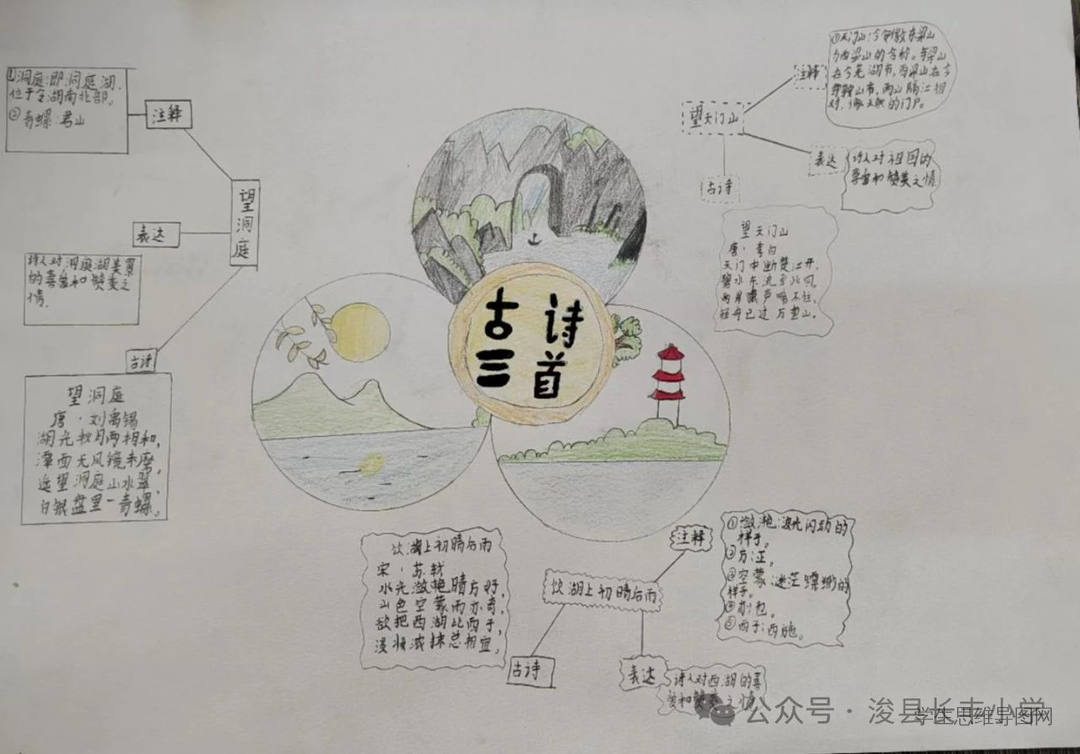 古诗
三首
望洞庭
注释
①洞庭:即洞庭湖,
位于今湖南北部。
②青螺:君山
表达
诗人对洞庭湖美景
的喜爱和赞美之
情.
古诗
望洞庭
唐·刘禹锡
湖光秋月两相和,
潭面无风镜未磨,
遥望洞庭山水翠,
白银盘里一青螺。
望天门山
注释
①天门山:今安徽东梁山
与西梁山的合称。东梁山
在今芜湖市,西梁山在今
马鞍山市,两山隔江相
对,像天然的门户。
表达
诗人对祖国的
喜爱和赞美之情
古诗
望天门山
唐·李白
天门中断楚江开,
碧水东流至此回,
两岸
饮湖上初晴后雨
注释
①潋滟:波光闪动的
样子。
②方:正。
③空蒙:迷茫
样子。
④亦:也。
⑤西子:西施。
古诗
饮湖上初晴后雨
宋·苏轼
水光潋艳晴方好,
山色空蒙雨亦奇,
欲把西湖比西子,
淡妆浓抹总相宜,
表达
诗人对西湖的喜
爱和赞美之情
公众号·浚县长丰小学
学生思维导图网